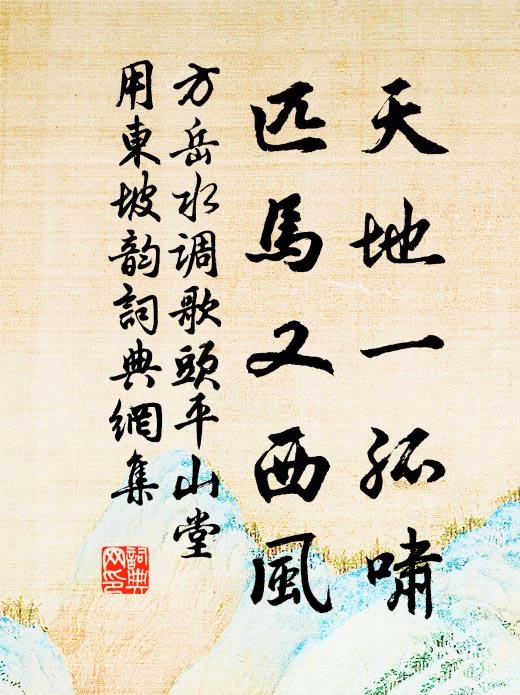 天地一孤嘯
匹馬又西風
方岳水调歌頭平山堂
用東坡韵詞典網集
詞典網印